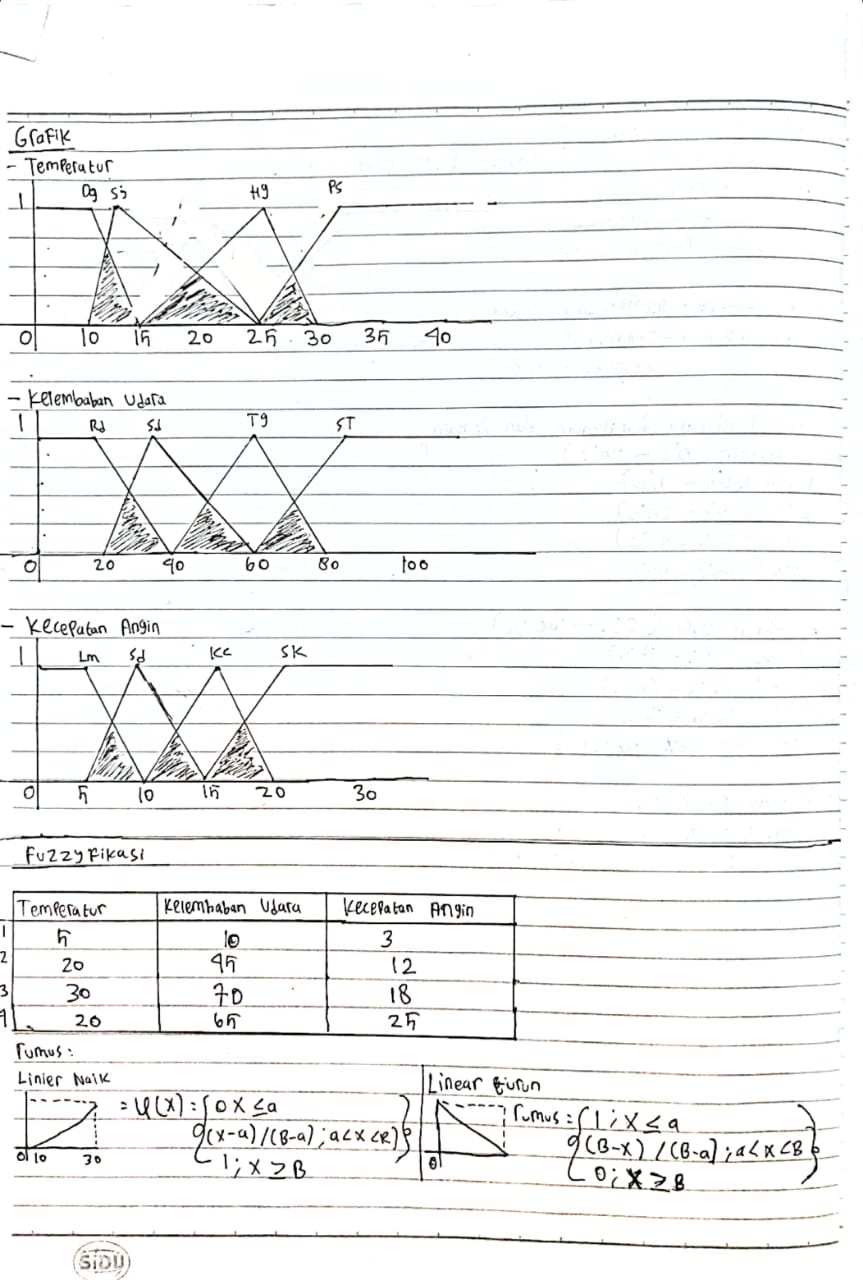 Grafik
- Temperatur
1 Dg Sj Hg PS
0 10 15 20 25 30 35 40
- Kelembaban Udara
1 Rd Sd Tg ST
0 20 40 60 80 100
- Kecepatan Angin
1 Lm Sd Kc SK
0 5 10 15 20 30
Fuzzyfikasi
Temperatur Kelembaban Udara Kecepatan Angin
1 5 10 3
2 20 45 12
3 30 70 18
4 20 65 25
Rumus :
Linier Naik
= μ(x) = { 0 x ≤ a
(x-a) / (B-a) ; a < x < B
1 ; x ≥ B
0 10 30
Linear Turun
Rumus = { 1 ; x ≤ a
(B-x) / (B-a) ; a < x < B
0 ; x ≥ B
0
SiDU